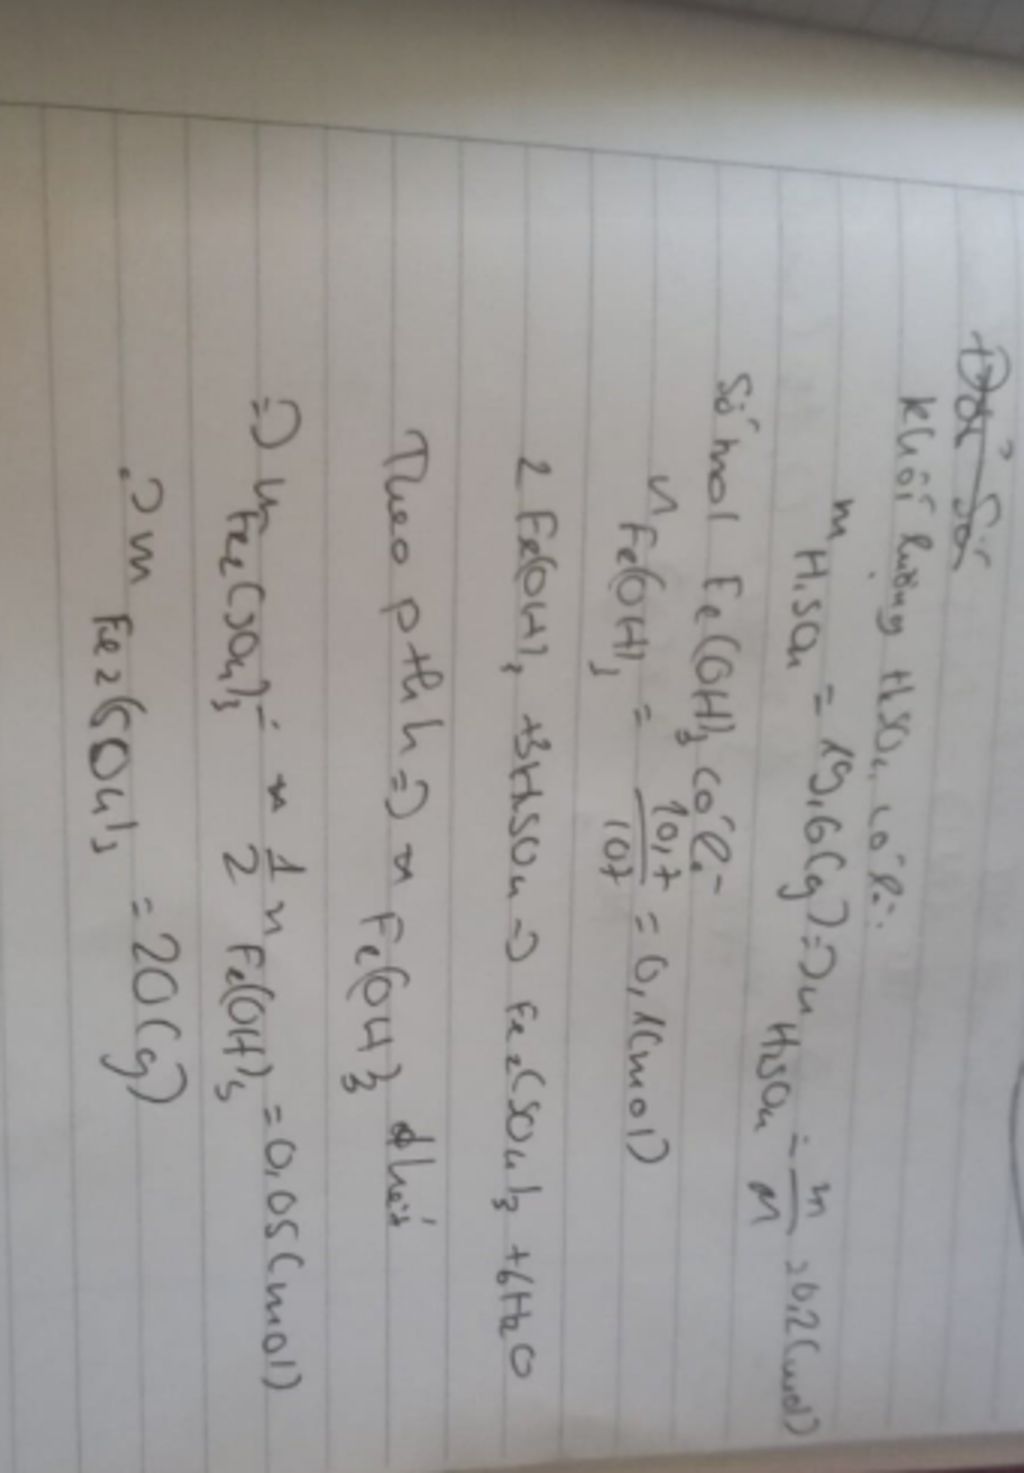 Đổi Số
Khối lượng H2SO4 có là:
m H2SO4 = 19,6(g) => n H2SO4 = m/M = 0,2(mol)
Số mol Fe(OH)3 có là
n Fe(OH)3 = 10,7/107 = 0,1(mol)
2 Fe(OH)3 +3H2SO4 => Fe2(SO4)3 +6H2O
Theo pthh => n Fe(OH)3 hết
=> n Fe2(SO4)3 = 1/2 n Fe(OH)3 = 0,05(mol)
=> m Fe2(SO4)3 = 20(g)